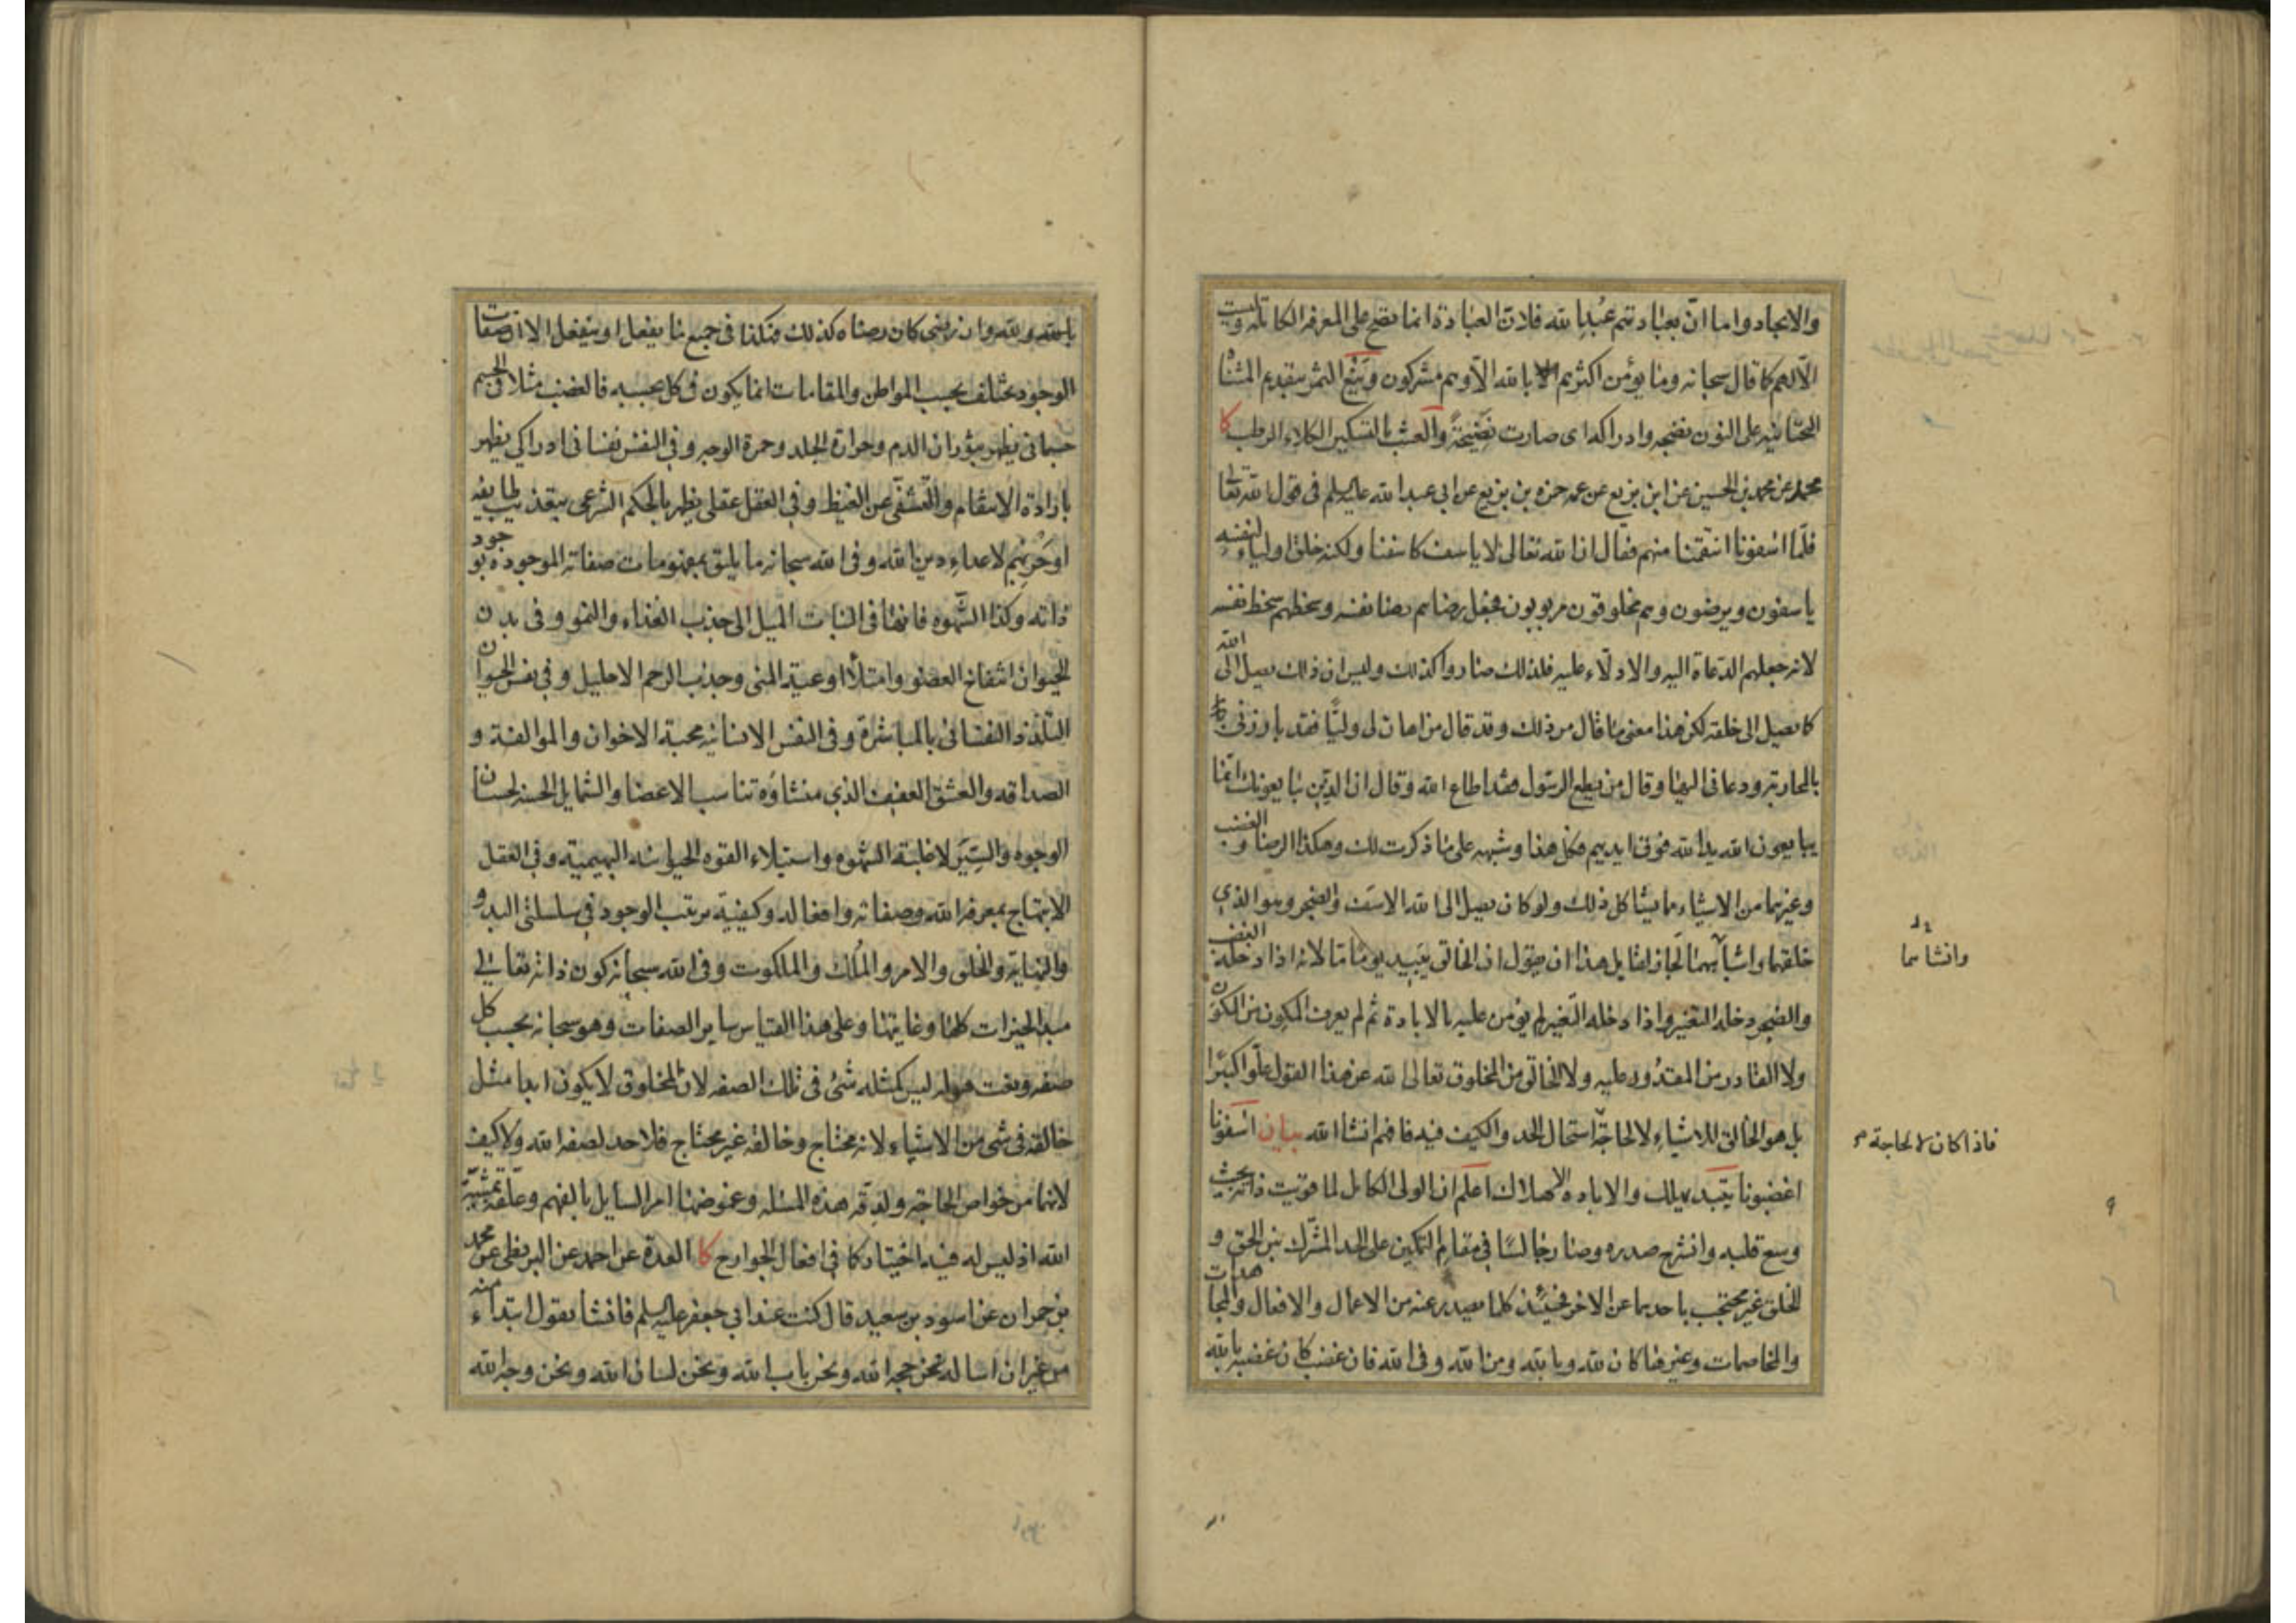 والايجاد واما ان بعبادتهم عُبد الله فلان العبادة انما يصح على المعرفة الكاملة وليست
الا لهم كما قال سبحانه وما يؤمن اكثرهم بالله الا وهم مشركون وينع الثمر بتقديم المثناة
التحتانية على النون نضجه وادراكه اى صارت نضيجة والعشب بالتسكين الكلاء الرطب كا
محمد عن محمد بن الحسين عن ابن بزيع عن عمه حمزه بن بزيع عن ابى عبد الله عليه السلم فى قول الله تعا
فلما اسفونا انتقمنا منهم فقال ان الله تعالى لا ياسف كاسفنا ولكنه خلق اولياء لنفسه
ياسفون ويرضون وهم مخلوقون مربوبون فجعل رضاهم رضا نفسه وسخطهم سخط نفسه
لانه جعلهم الدعاة اليه والادلاء عليه فلذلك صاروا كذلك وليس ان ذلك يصل الى الله
كما يصل الى خلقه لكن هذا معنى ما قال من ذلك وقد قال من اهان لى وليا فقد بارزنى
بالمحاربة ودعانى اليها وقال من يطع الرسول فقد اطاع الله وقال ان الذين يبايعونك انما
يبايعون الله يد الله فوق ايديهم فكل هذا وشبهه على ما ذكرت لك وهكذا الرضا والغضب
وغيرهما من الاشياء مما يشاكل ذلك ولو كان يصل الى الله الاسف والضجر وهو الذي
خلقهما واشباههما لجاز لقايل هذا ان يقول ان الخالق يبيد يوما ما لانه اذا دخله الغضب
والضجر دخله التغير واذا دخله التغير لم يؤمن عليه بالابادة ثم لم يعرف المكون من المكون
ولا القادر من المقدور عليه ولا الخالق من المخلوق تعالى الله عن هذا القول علوا كبيرا
بل هو الخالق للاشياء لا لحاجة استحال الحد والكيف فيه فافهم انشا الله بيان اسفونا
اغضبونا يبيد يهلك والاباده الاهلاك اعلم ان الولى الكامل لما قويت ذاته بحيث
وسع قلبه وانشرح صدره وصار جالسا في مقام التمكين على الحد المشترك بين الحق و
الخلق غير محتجب باحدهما عن الاخر فحينئذ كلما يصدر عنه من الاعمال والافعال والمجاهدات
والمخاصمات وغيرها كان لله وبالله ومن الله وفى الله فان غضب كان غضبه بالله
وانشاهما
فاذا كان لا لحاجة
بالله ولله وان رضى كان رضاه كذلك فهكذا فى جميع ما يفعل او ينفعل الا ان صفات
الوجود يختلف بحسب المواطن والمقامات انما يكون فى كل بحسبه فالغضب مثلا فى الجسم
جسمانى يظهر بثوران الدم وحرارة الجلد وحمرة الوجه وفى النفس نفسانى ادراكي يظهر
بارادة الانتقام والتشفي عن الغيظ وفى العقل عقلى يظهر بالحكم الشرعى بتعذيب طايفه
او حربهم لاعداء دين الله وفى الله سبحانه ما يليق بمفهومات صفاته الموجودة بوجود
ذاته وكذا الشهوه فانها فى النبات الميل الى جذب الغذاء والنمو وفى بدن
الحيوان انتفاخ العضو وامتلاء اوعية المنى وجذب الرحم الاحليل وفى نفس الحيوان
التلذذ النفسانى بالمباشرة وفى النفس الانسانيه محبة الاخوان والموالفة و
الصداقه والعشق العفيف الذي منشاؤه تناسب الاعضا والشمايل الحسنه لحسان
الوجوه والسير لا غلبة الشهوه واستيلاء القوه الحيوانيه البهيمية وفى العقل
الابتهاج بمعرفة الله وصفاته وافعاله وكيفية مرتب الوجود في سلسلتى البدو
والنهاية والخلق والامر والملك والملكوت وفى الله سبحانه كون ذاته تعالى
مبدا الخيرات كلها وغايتها وعلى هذا القياس ساير الصفات وهو سبحانه بحسب كل
صفه ونعت هو له ليس كمثله شئ فى تلك الصفه لان المخلوق لا يكون ابدا مثل
خالقه فى شى من الاشياء لانه محتاج وخالقه غير محتاج فلا حد لصفه الله ولا كيف
لانهما من خواص الحاجة ولدقة هذه المسئله وغموضها امر السايل بالفهم وعلقه بمشية
الله اذ ليس له فيه اختيار كما فى افعال الجوارح كا العدة عن احمد عن البزنطى عن محمد
بن حمران عن اسود بن سعيد قال كنت عند ابي جعفر عليه السلم فانشأ يقول ابتداء منه
من غير ان اساله نحن حجه الله ونحن باب الله ونحن لسان الله ونحن وجه الله